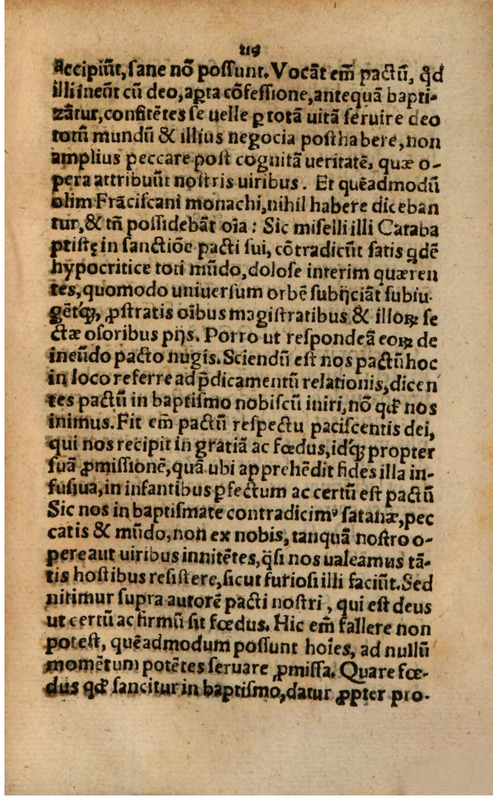 219
Accipiūt, sane nō possunt. Vocāt em̄ pactū, qd
illi ineūt cū deo, apta cōfessione, antequā bapti-
zātur, confitētes se uelle ꝑ totā uitā seruire deo
totū mundū & illius negocia posthabere, non
amplius peccare post cognitā ueritatē, quæ o-
pera attribuūt nostris uiribus. Et quēadmodū
olim Frāciscani monachi, nihil habere diceban
tur, & tn̄ possidebāt oīa: Sic miselli illi Cataba
ptistę in sanctiōe pacti sui, cōtradicūt satis qdē
hypocritice toti mūdo, dolose interim quæren
tes, quomodo uniuersum orbē subijciāt subiu-
gētꝗ, ꝓstratis oībus magistratibus & illoꝝ se
ctæ osoribus pijs. Porro ut respondeā eoꝝ de
ineūdo pacto nugis. Sciendū est nos pactū hoc
in loco referre ad p̄dicamentū relationis, dicen
tes pactū in baptismo nobiscū iniri, nō qđ nos
inimus. Fit em̄ pactū respectu paciscentis dei,
qui nos recipit in gratiā ac fœdus, idꝗ propter
suā ꝓmissionē, quā ubi apprehēdit fides illa in-
fusiua, in infantibus ꝑfectum ac certū est pactū
Sic nos in baptismate contradicimꝰ satanæ, pec
catis & mūdo, non ex nobis, tanquā nostro o-
pere aut uiribus innitētes, qsi nos ualeamus tā-
tis hostibus resistere, sicut furiosi illi faciūt. Sed
nitimur supra autorē pacti nostri, qui est deus
ut certū ac firmū sit fœdus. Hic em̄ fallere non
potest, quēadmodum possunt hoīes, ad nullū
momētum potētes seruare ꝓmissa. Quare fœ-
dus qđ sancitur in baptismo, datur ꝓpter pro-